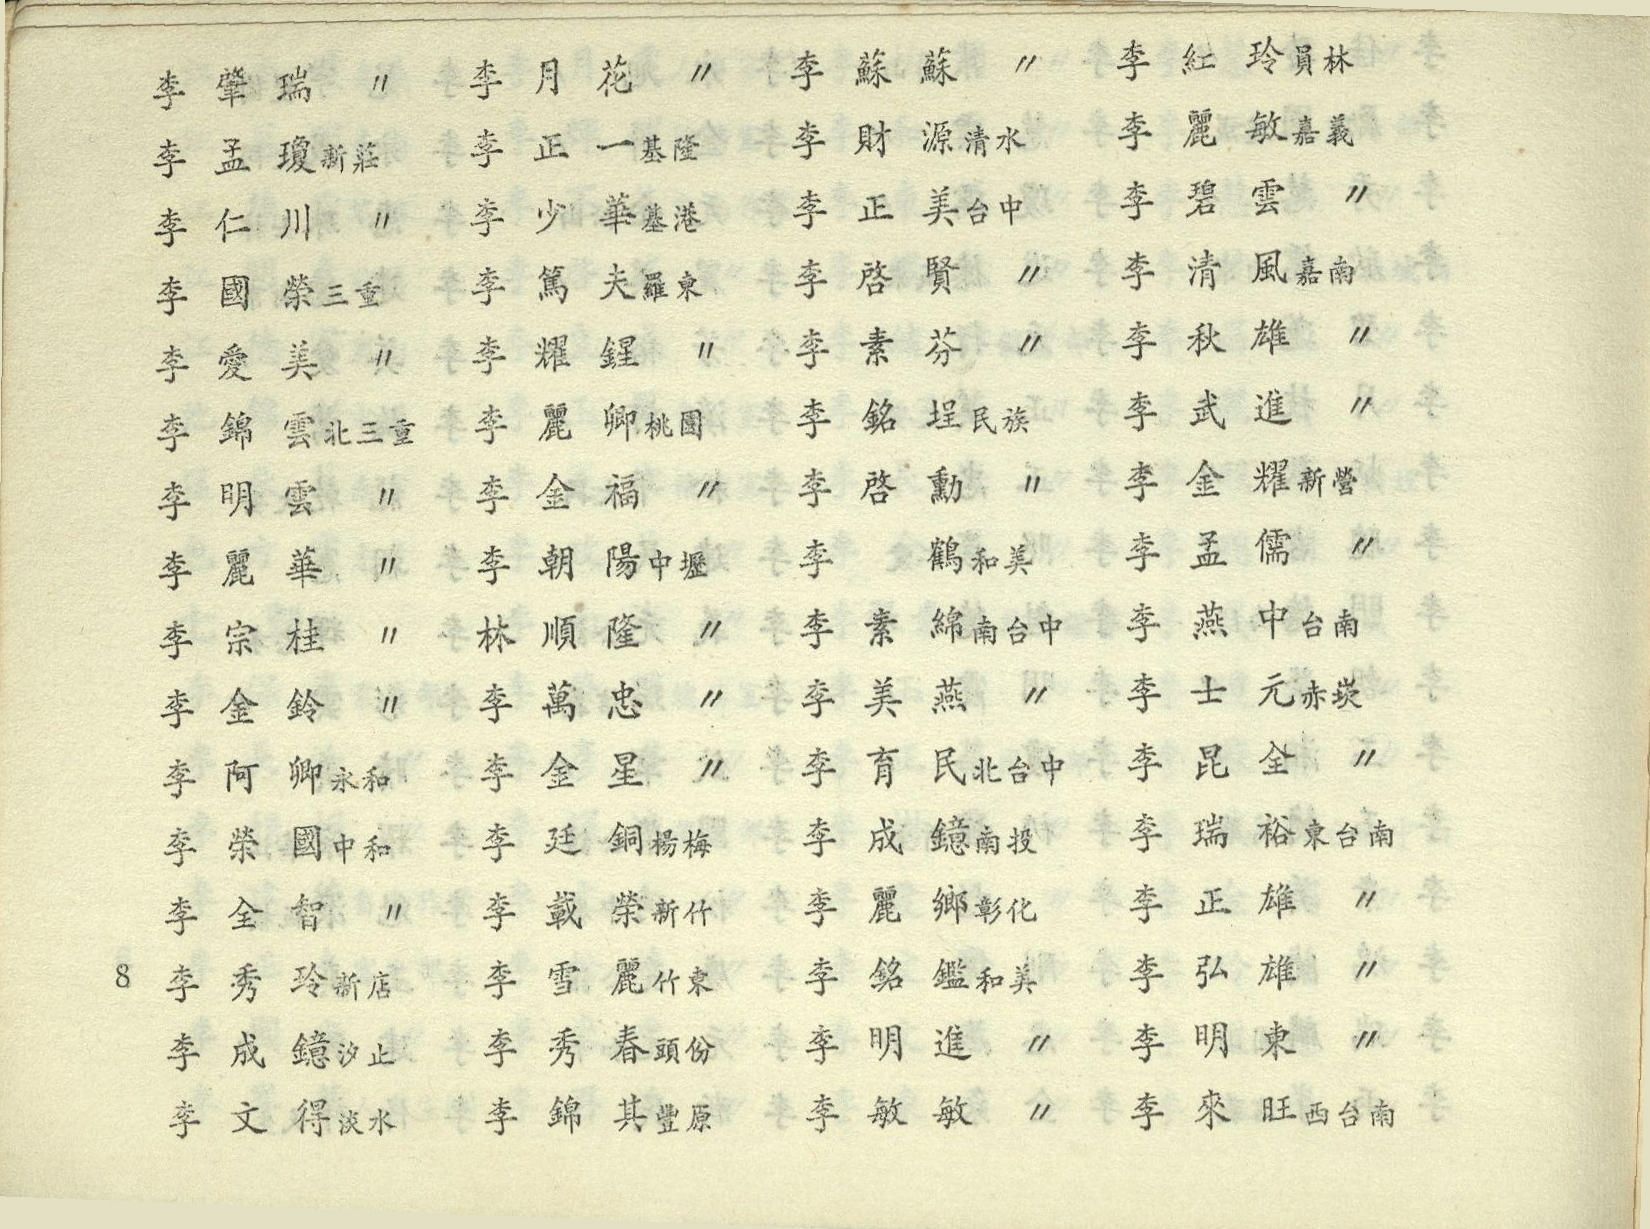 李肇瑞 〃
李孟瓊 新莊
李仁川 〃
李國榮 三重
李愛美 〃
李錦雲 北三重
李明雲 〃
李麗華 〃
李宗桂 〃
李金鈴 〃
李阿卿 永和
李榮國 中和
李全智 〃
李秀玲 新店
李成鐿 汐止
李文得 淡水
李月花 〃
李正一 基隆
李少華 基港
李篤夫 羅東
李耀鍟 〃
李麗卿 桃園
李金福 〃
李朝陽 中壢
林順隆 〃
李萬忠 〃
李金星 〃
李廷銅 楊梅
李載榮 新竹
李雪麗 竹東
李秀春 頭份
李錦其 豐原
李蘇蘇 〃
李財源 清水
李正美 台中
李啓賢 〃
李素芬 〃
李銘埕 民族
李啓勳 〃
李鶴 和美
李素綿 南台中
李美燕 〃
李育民 北台中
李成鐿 南投
李麗鄉 彰化
李銘鑑 和美
李明進 〃
李敏敏 〃
李紅玲 員林
李麗敏 嘉義
李碧雲 〃
李清風 嘉南
李秋雄 〃
李武進 〃
李金耀 新營
李孟儒 〃
李燕中 台南
李士元 赤崁
李昆全 〃
李瑞裕 東台南
李正雄 〃
李弘雄 〃
李明東 〃
李來旺 西台南
8